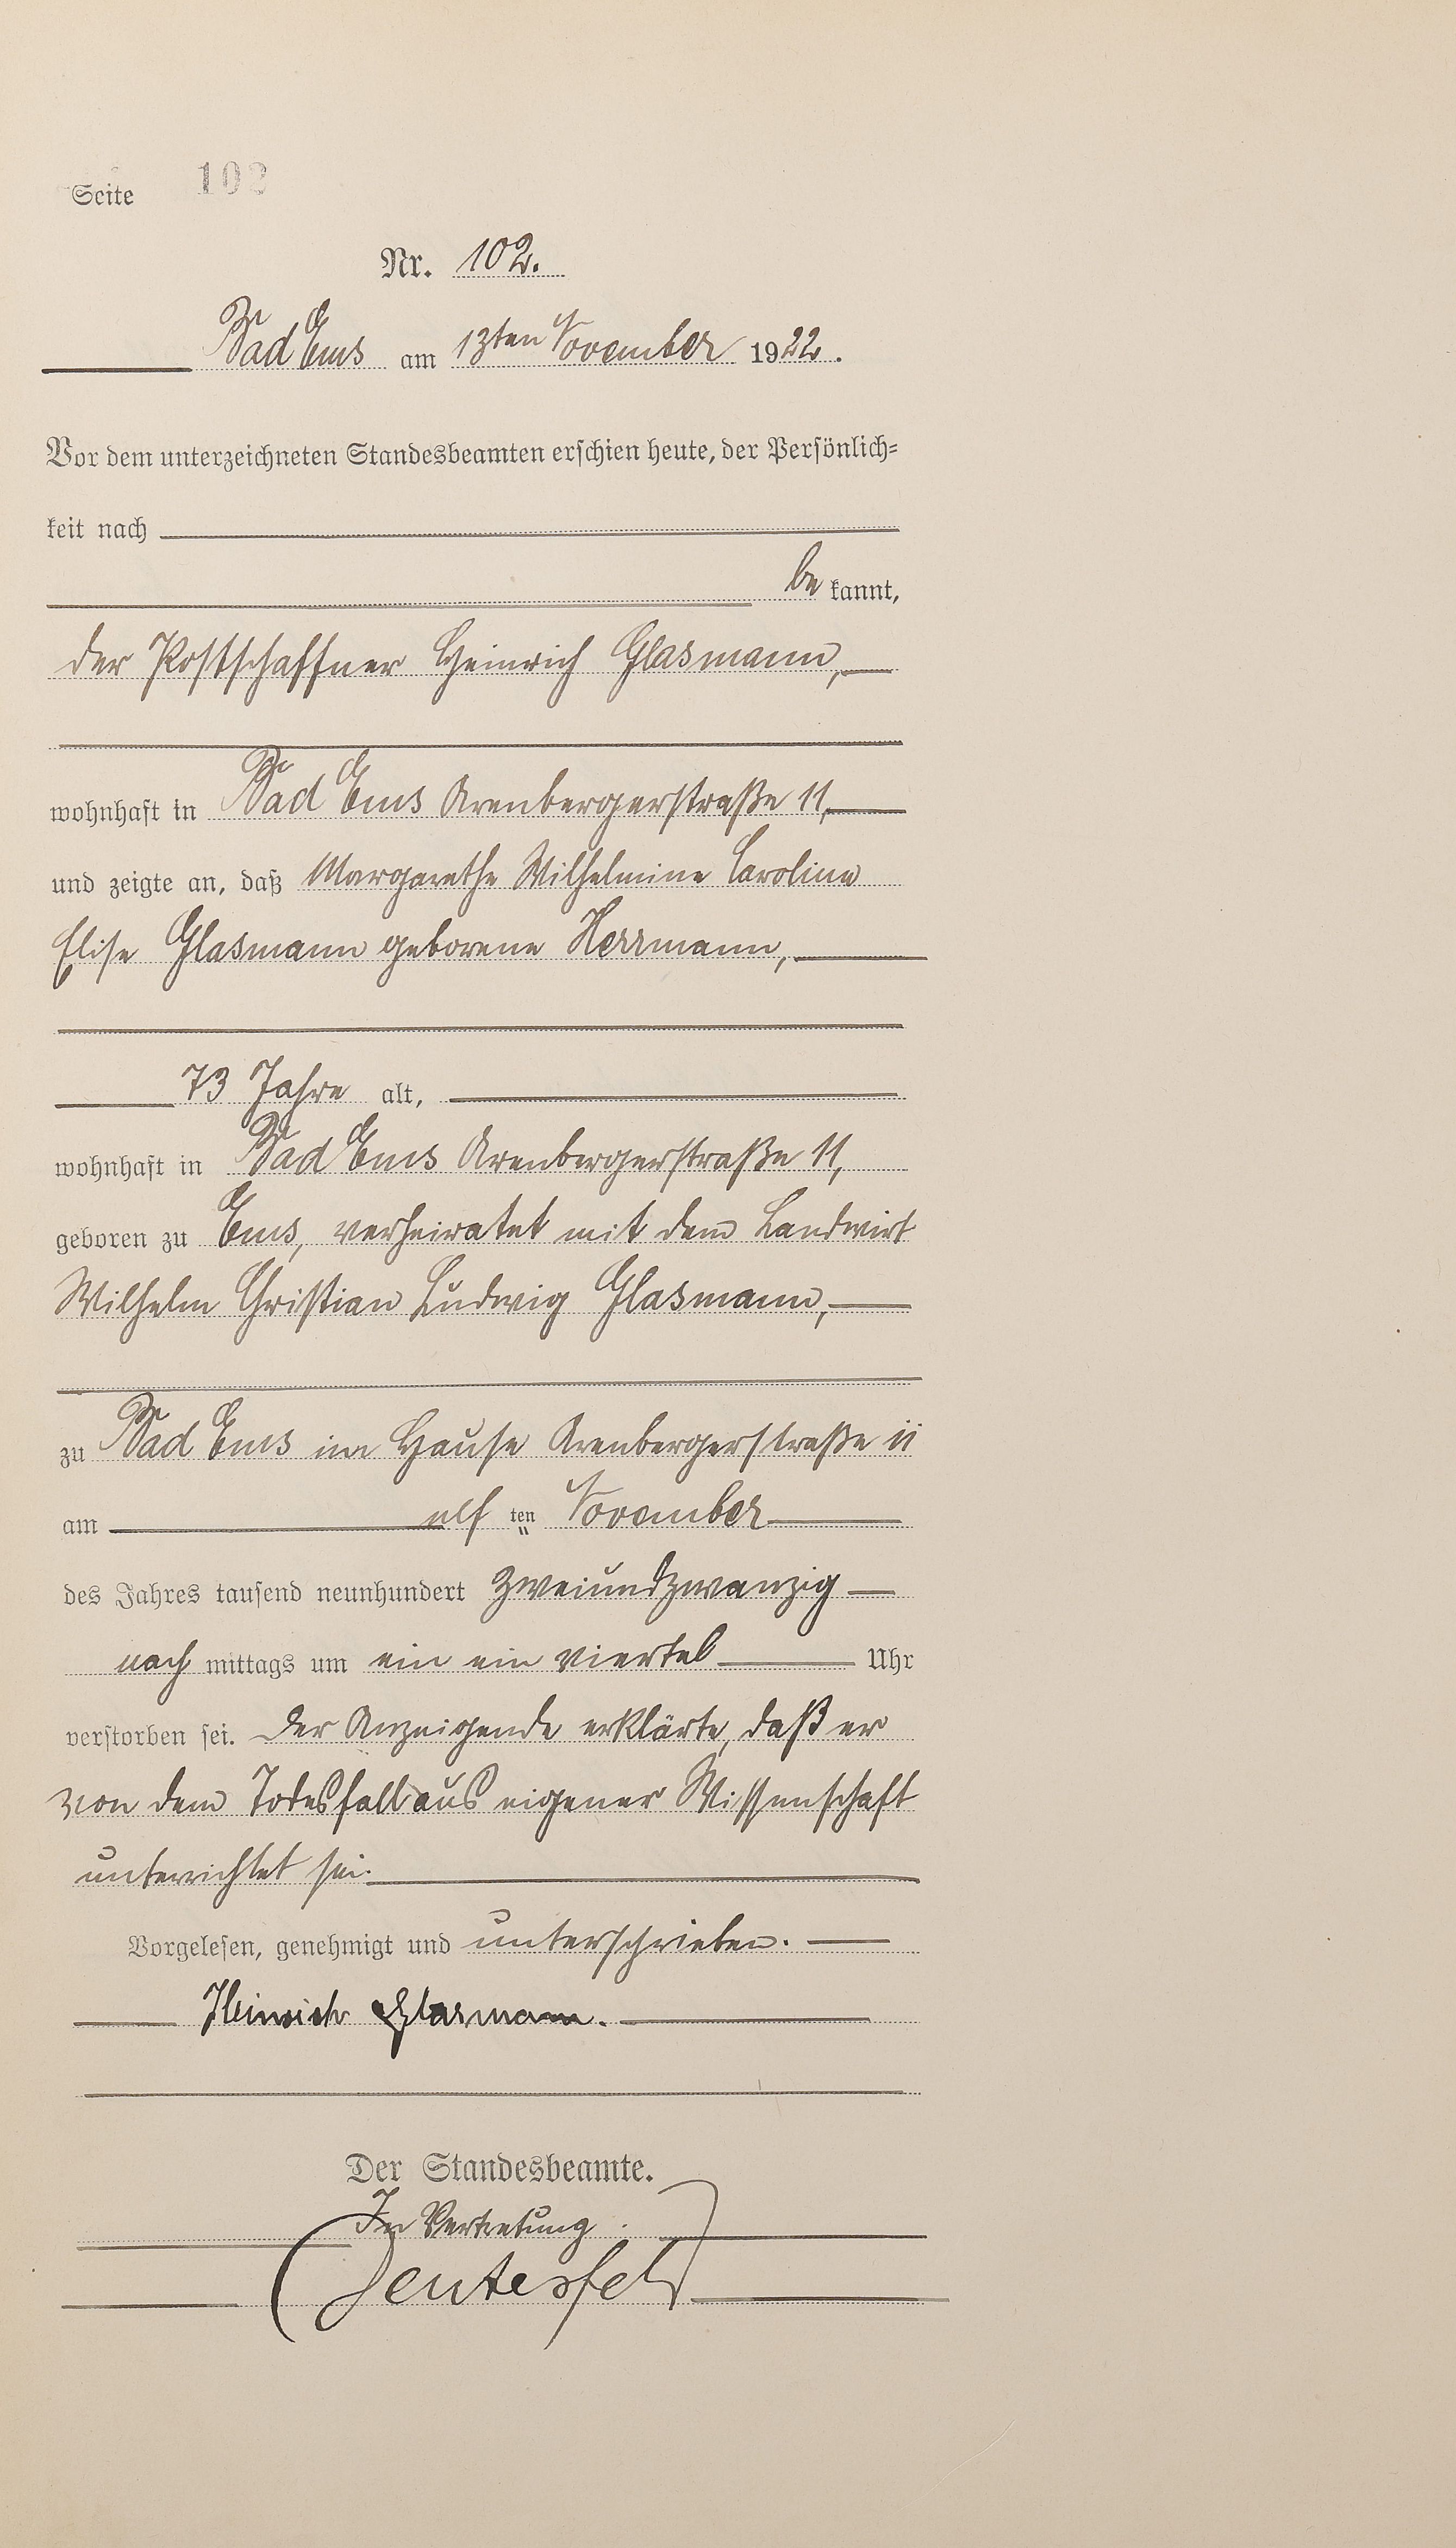 Seite 102
Nr. 102.
Bad Ems am 13ten November 1922.
Vor dem unterzeichneten Standesbeamten erschien heute, der Persönlich-
keit nach
be kannt,
der Postschaffner Heinrich Glasmann,
wohnhaft in Bad Ems Arenbergerstraße 11,
und zeigte an, daß Margarethe Wilhelmine Caroline
Elise Glasmann geborene Herrmann,
73 Jahre alt,
wohnhaft in Bad Ems Arenbergerstraße 11,
geboren zu Ems, verheiratet mit dem Landwirt
Wilhelm Christian Ludwig Glasmann,
zu Bad Ems im Hause Arenbergerstraße 11
am elf ten November
des Jahres tausend neunhundert zweiundzwanzig
nach mittags um ein ein viertel Uhr
verstorben sei. Der Anzeigende erklärte, daß er
von dem Todesfall aus eigener Wissenschaft
unterrichtet sei.
Vorgelesen, genehmigt und unterschrieben.
Heinrich Glasmann.
Der Standesbeamte.
In Vertretung